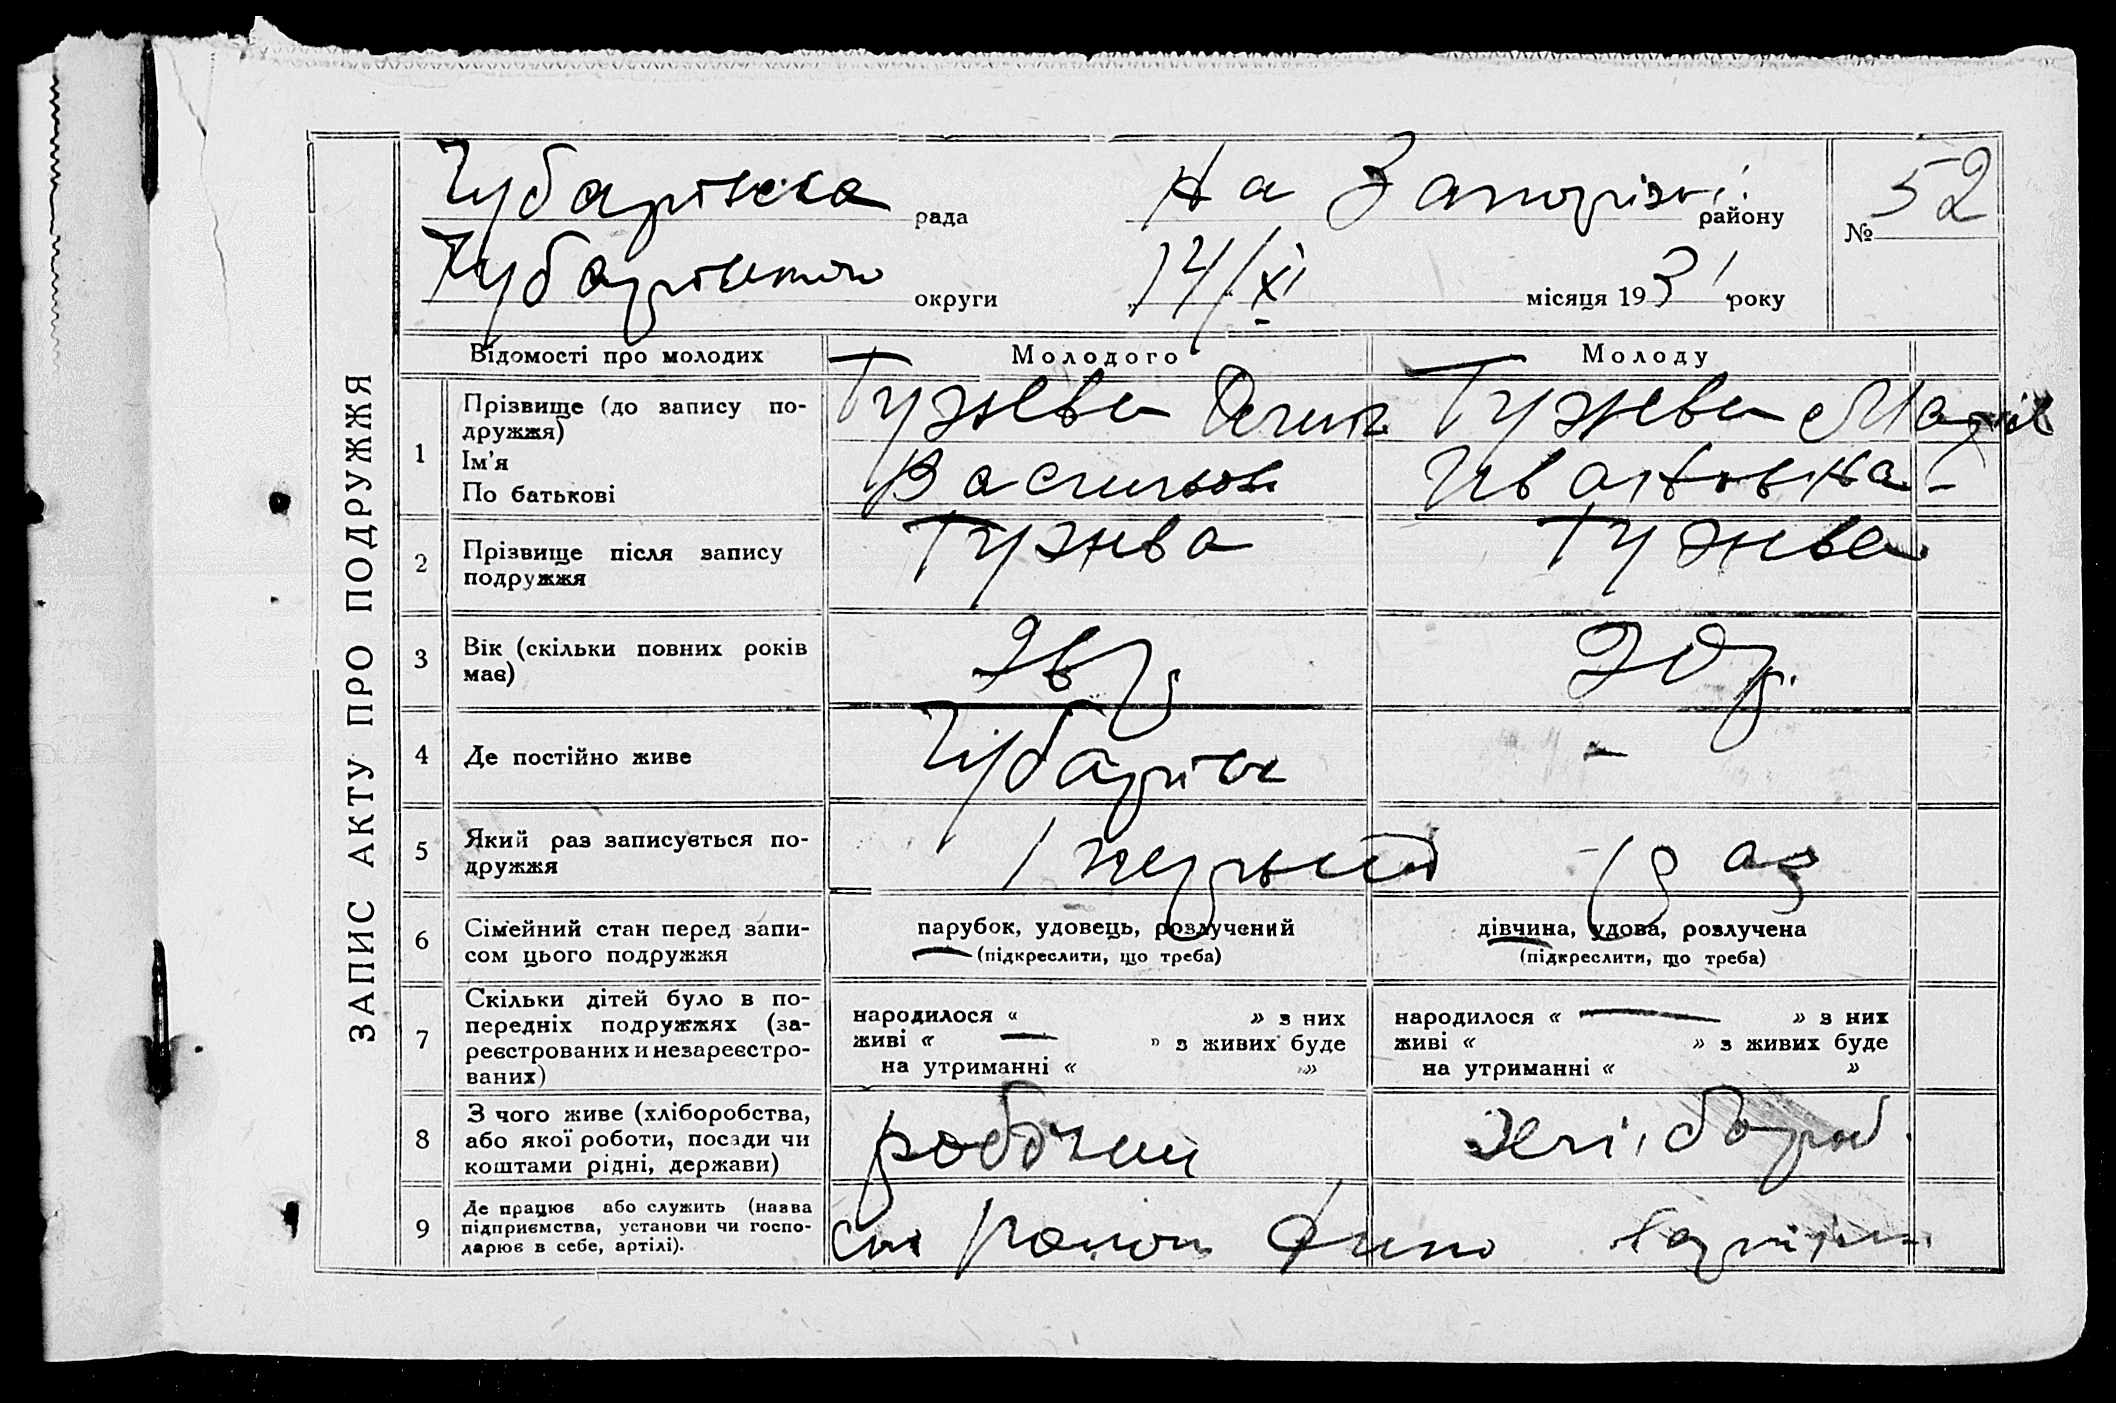 ЗАПИС АКТУ ПРО ПОДРУЖЖЯ
Чубарівска рада На Запорізькі району № 52
Чубарівського округи 14/XI місяця 1931 року
Відомості про молодих Молодого Молоду
1 Прізвище (до запису подружжя) Гужва Гужва Марія
Ім'я
По батькові Васильов Ивановна
2 Прізвище після запису подружжя Гужва Гужва
3 Вік (скільки повних років має) 26 р 20 р.
4 Де постійно живе Чубарівка –
5 Який раз записується подружжя 1 первый раз
6 Сімейний стан перед записом цього подружжя парубок, удовець, розлучений дівчина, удова, розлучена
(підкреслити, що треба) (підкреслити, що треба)
7 Скільки дітей було в попередніх подружжях (зареєстрованих и незареєстрованих) народилося « » з них народилося « » з них
живі « » з живих буде живі « » з живих буде
на утриманні « » на утриманні « »
8 З чого живе (хліборобства, або якої роботи, посади чи коштами рідні, держави) робочий хлібороб.
9 Де працює або служить (назва підприємства, установи чи господарює в себе, артілі).